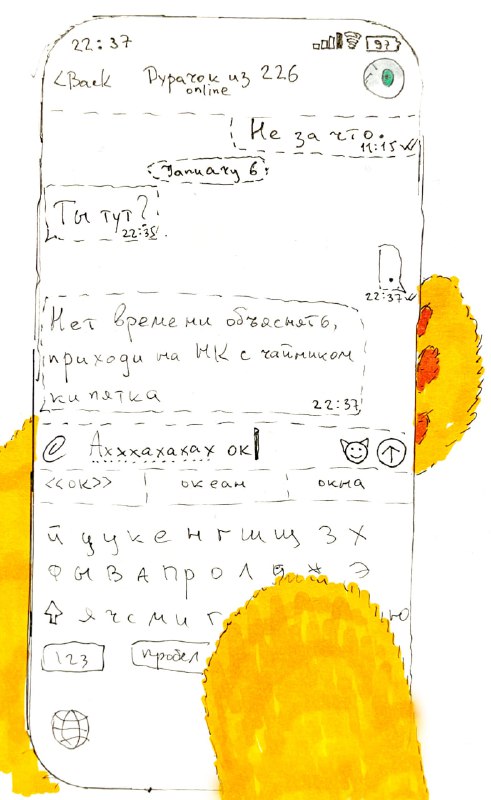 22:37 97
<Back Дурачок из 226
online
Не за что.
11:15
January 6
Ты тут?
22:35
.
22:37
Нет времени объяснять,
приходи на НК с чайником
кипятка
22:37
Ахххахахах ок
<<ок>> океан окна
й ц у к е н г ш щ з х
ф ы в а п р о л д ж э
я ч с м и т ю
123 пробел